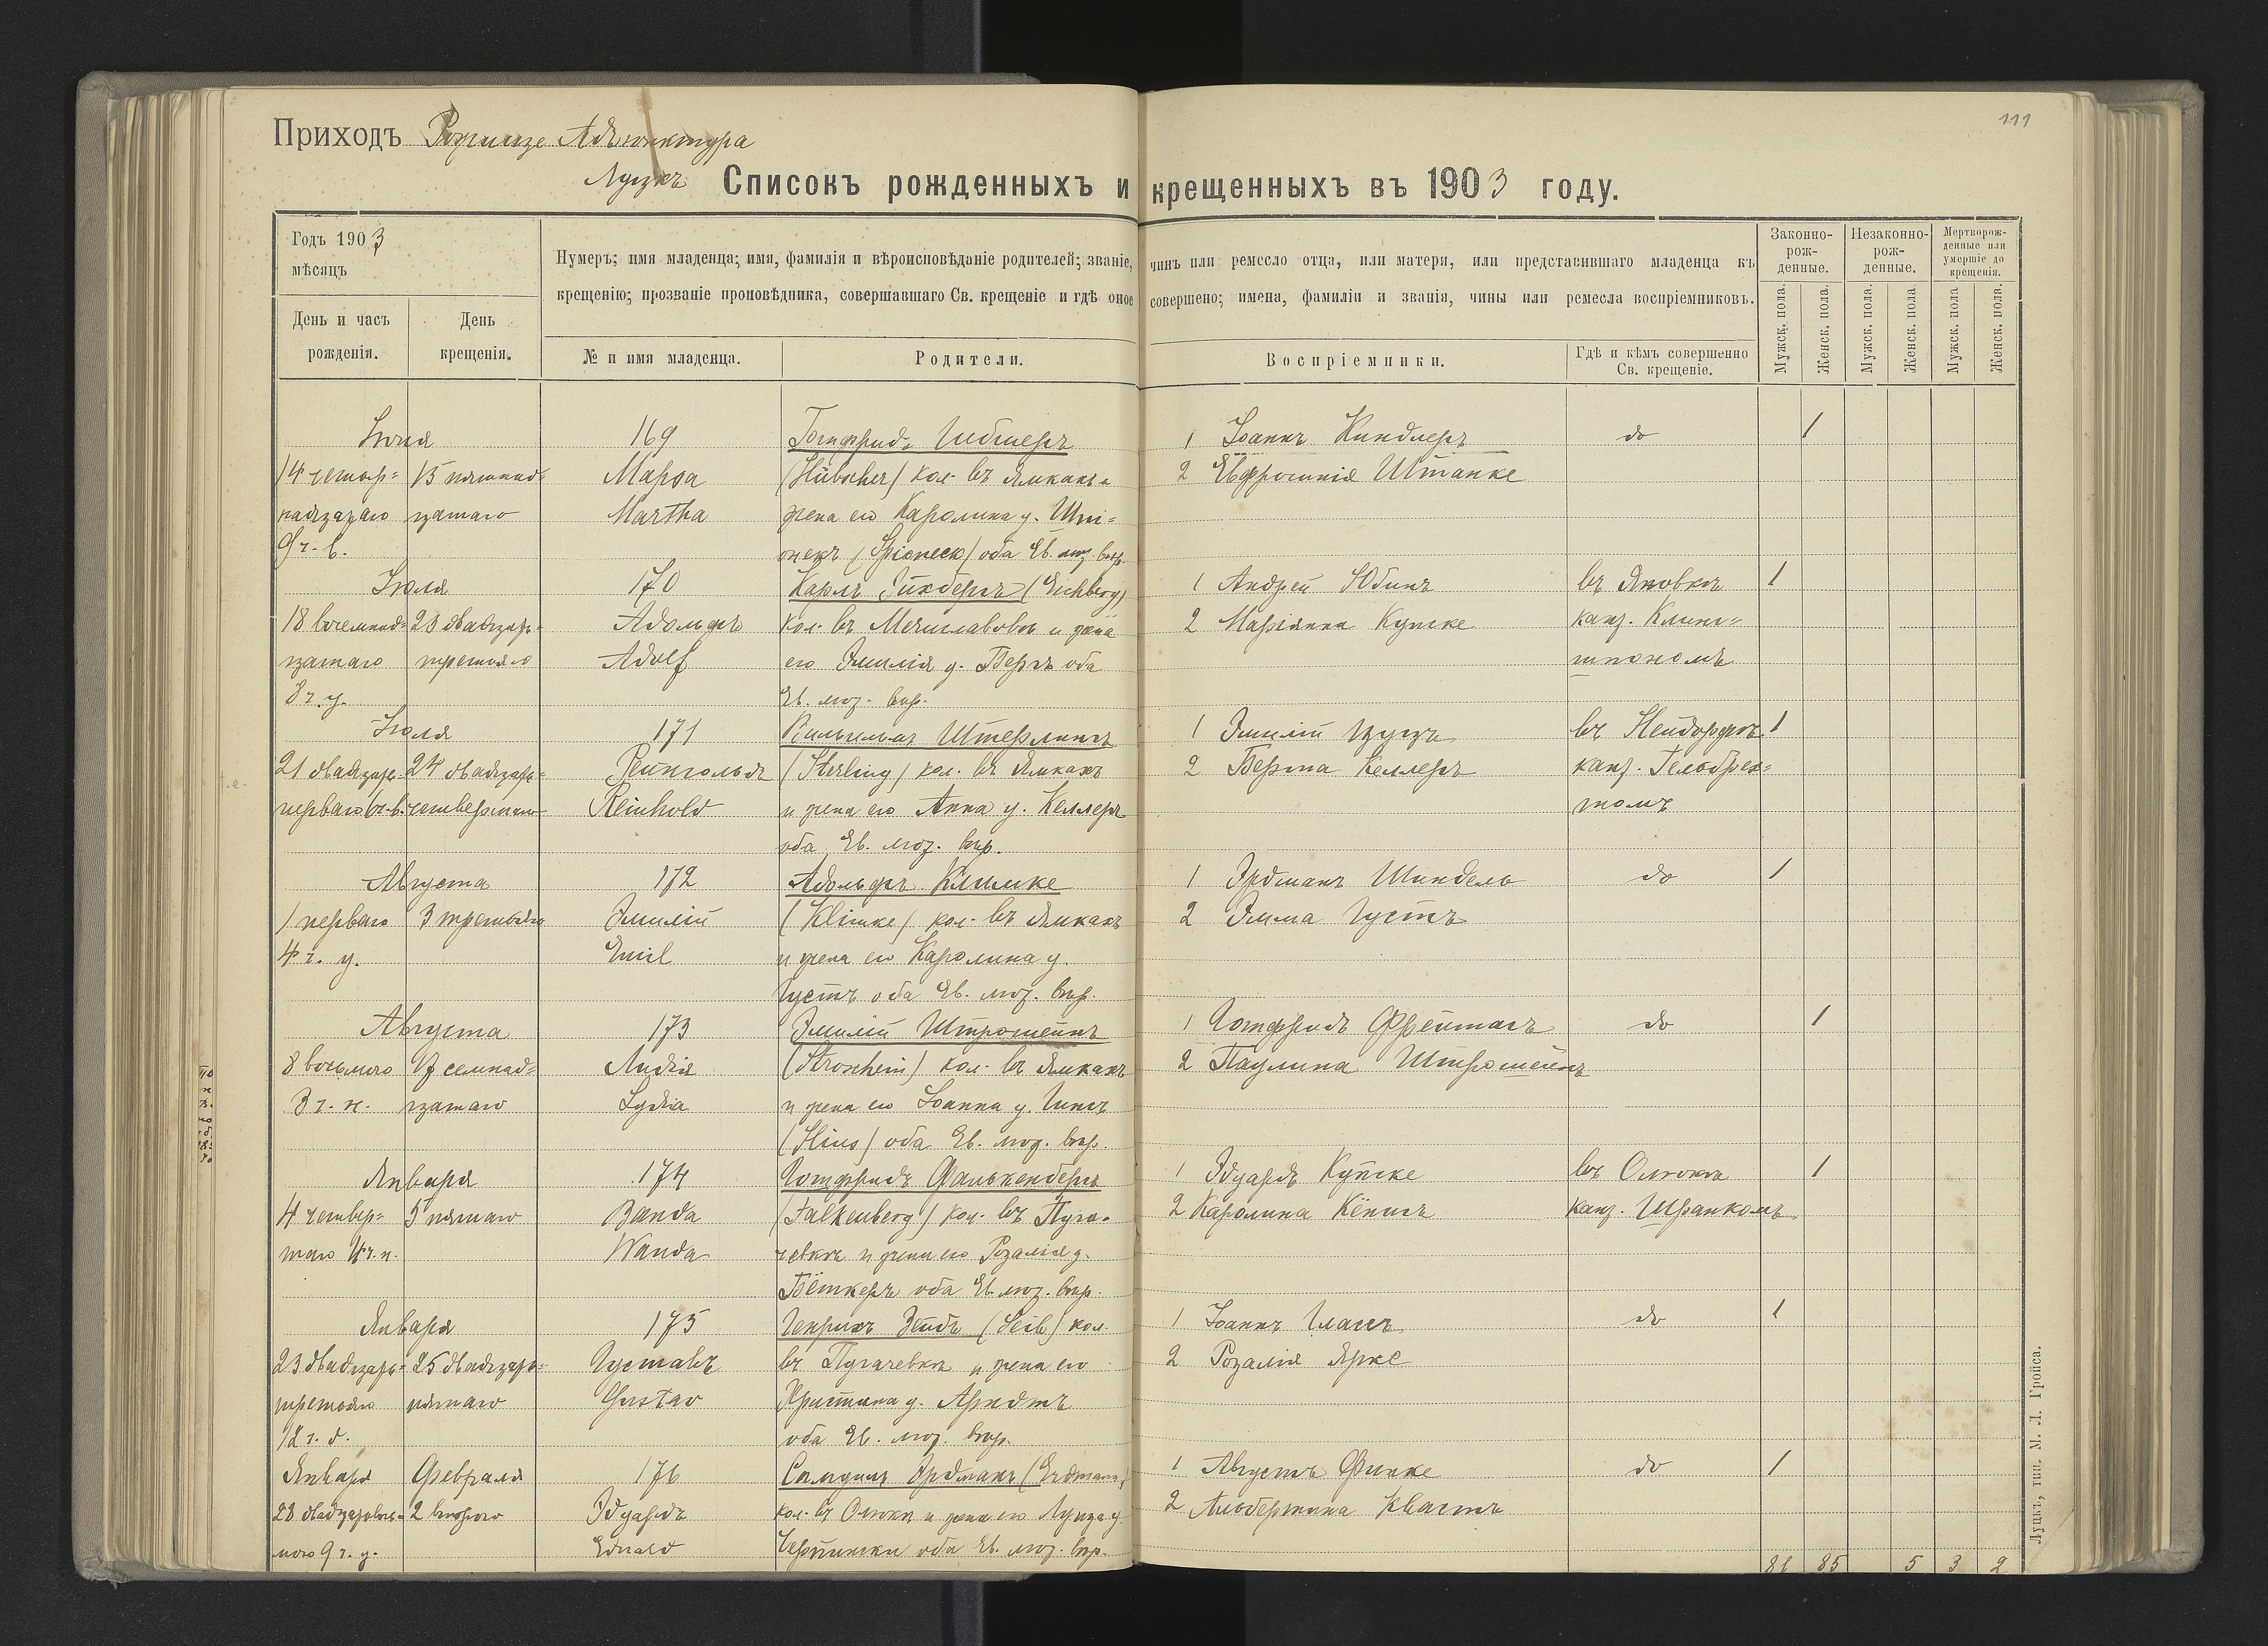 111
Приходъ Рожище Адъюнктура
Луцкъ
Списокъ рожденныхъ и крещенныхъ въ 1903 году.
Годъ 1903
мѣсяцъ
День и часъ рожденія.
День крещенія.
Нумеръ; имя младенца; имя, фамилія и вѣроисповѣданіе родителей; званіе, чинъ или ремесло отца, или матери, или представившаго младенца къ
крещенію; прозваніе проповѣдника, совершавшаго Св. крещеніе и гдѣ оное совершено; имена, фамиліи и званія, чины или ремесла воспріемниковъ.
№ и имя младенца.
Родители.
Воспріемники.
Гдѣ и кѣмъ совершенно Св. крещеніе.
Законно-рож-денные.
Незаконно-рож-денные.
Мертворож-денные или умершіе до крещенія.
Мужск. пола.
Женск. пола.
Мужск. пола.
Женск. пола.
Мужск. пола
Женск. пола.
Іюля 169 Готфридъ Гибшеръ 1 Іоаннъ Киндлеръ до 1
14 четыр= 15 пятнад= Марѳа (Hübscher) кол. въ Ямкахъ и 2 Евфросинія Штанке
надцатаго цатаго Martha жена его Каролина у. Шпі=
9 ч. в. онекъ (Spioneck) оба Ев. лют. вѣр.
Іюля 170 Карлъ Эйхбергъ (Eichberg) 1 Андрей Юбинъ въ Яновкѣ 1
18 восемнад= 23 двадцать= Адольфъ кол. въ Мечиславовкѣ и жена 2 Маріанна Купске кант. Клинг=
цатаго третяго Adolf его Эмилія у. Бергъ оба шпономъ
8 ч. у. Ев. лют. вѣр.
Іюля 171 Вильгельмъ Штерлингъ 1 Эмилій Цуцъ въ Нейдорфѣ 1
21 двадцать 24 двадцать= Рейнгольдъ (Sterling) кол. въ Ямкахъ 2 Берта Келлеръ кант. Гельбрех=
перваго 6 ч. в. четвертаго Reinhold и жена его Анна у. Келлеръ томъ
оба Ев. лют. вѣр.
Августа 172 Адольфъ Климке 1 Эрдманъ Шиндель до 1
1 перваго 3 третьяго Эмилій (Klimke) кол. въ Ямкахъ 2 Эмма Густъ
4 ч. у. Emil и жена его Каролина у.
Густъ оба Ев. лют. вѣр.
Августа 173 Эмилій Штрошейнъ 1 Готфридъ Фрейтагъ до 1
8 восьмаго 17 семнад= Лидія (Stroschein) кол. въ Ямкахъ 2 Паулина Штрошейнъ
3 ч. н. цатаго Lydia и жена его Іоанна у. Гинсъ
(Hins) оба Ев. лют. вѣр.
Января 174 Готфридъ Фалькенбергъ 1 Эдуардъ Купске въ Олыкѣ 1
4 четвер= 5 пятаго Ванда (Falkenberg) кол. въ Пуга= 2 Каролина Кёнигъ кант. Шранкомъ
таго 4 ч. н. Wanda чевкѣ и жена его Розалія у.
Бёткеръ оба Ев. лют. вѣр.
Января 175 Генрихъ Зейбъ (Seib) кол. 1 Іоаннъ до 1
23 двадцать= 25 двадцать= Густавъ въ Пугачевкѣ и жена его 2 Розалія Ярке
третяго пятаго Gustav Христина у. Арндтъ
12 ч. д. оба Ев. лют. вѣр.
Января Февраля 176 Самуилъ Эрдманъ (Erdmann) 1 Августъ Финке до 1
28 2 втораго Эдуардъ кол. въ Олыкѣ и жена его Луиза у. 2 Альбертина Квастъ
9 ч. у. Eduard оба Ев. лют. вѣр.
81 85 5 3 2
Луцкъ, тип. М. Л. Гройса.